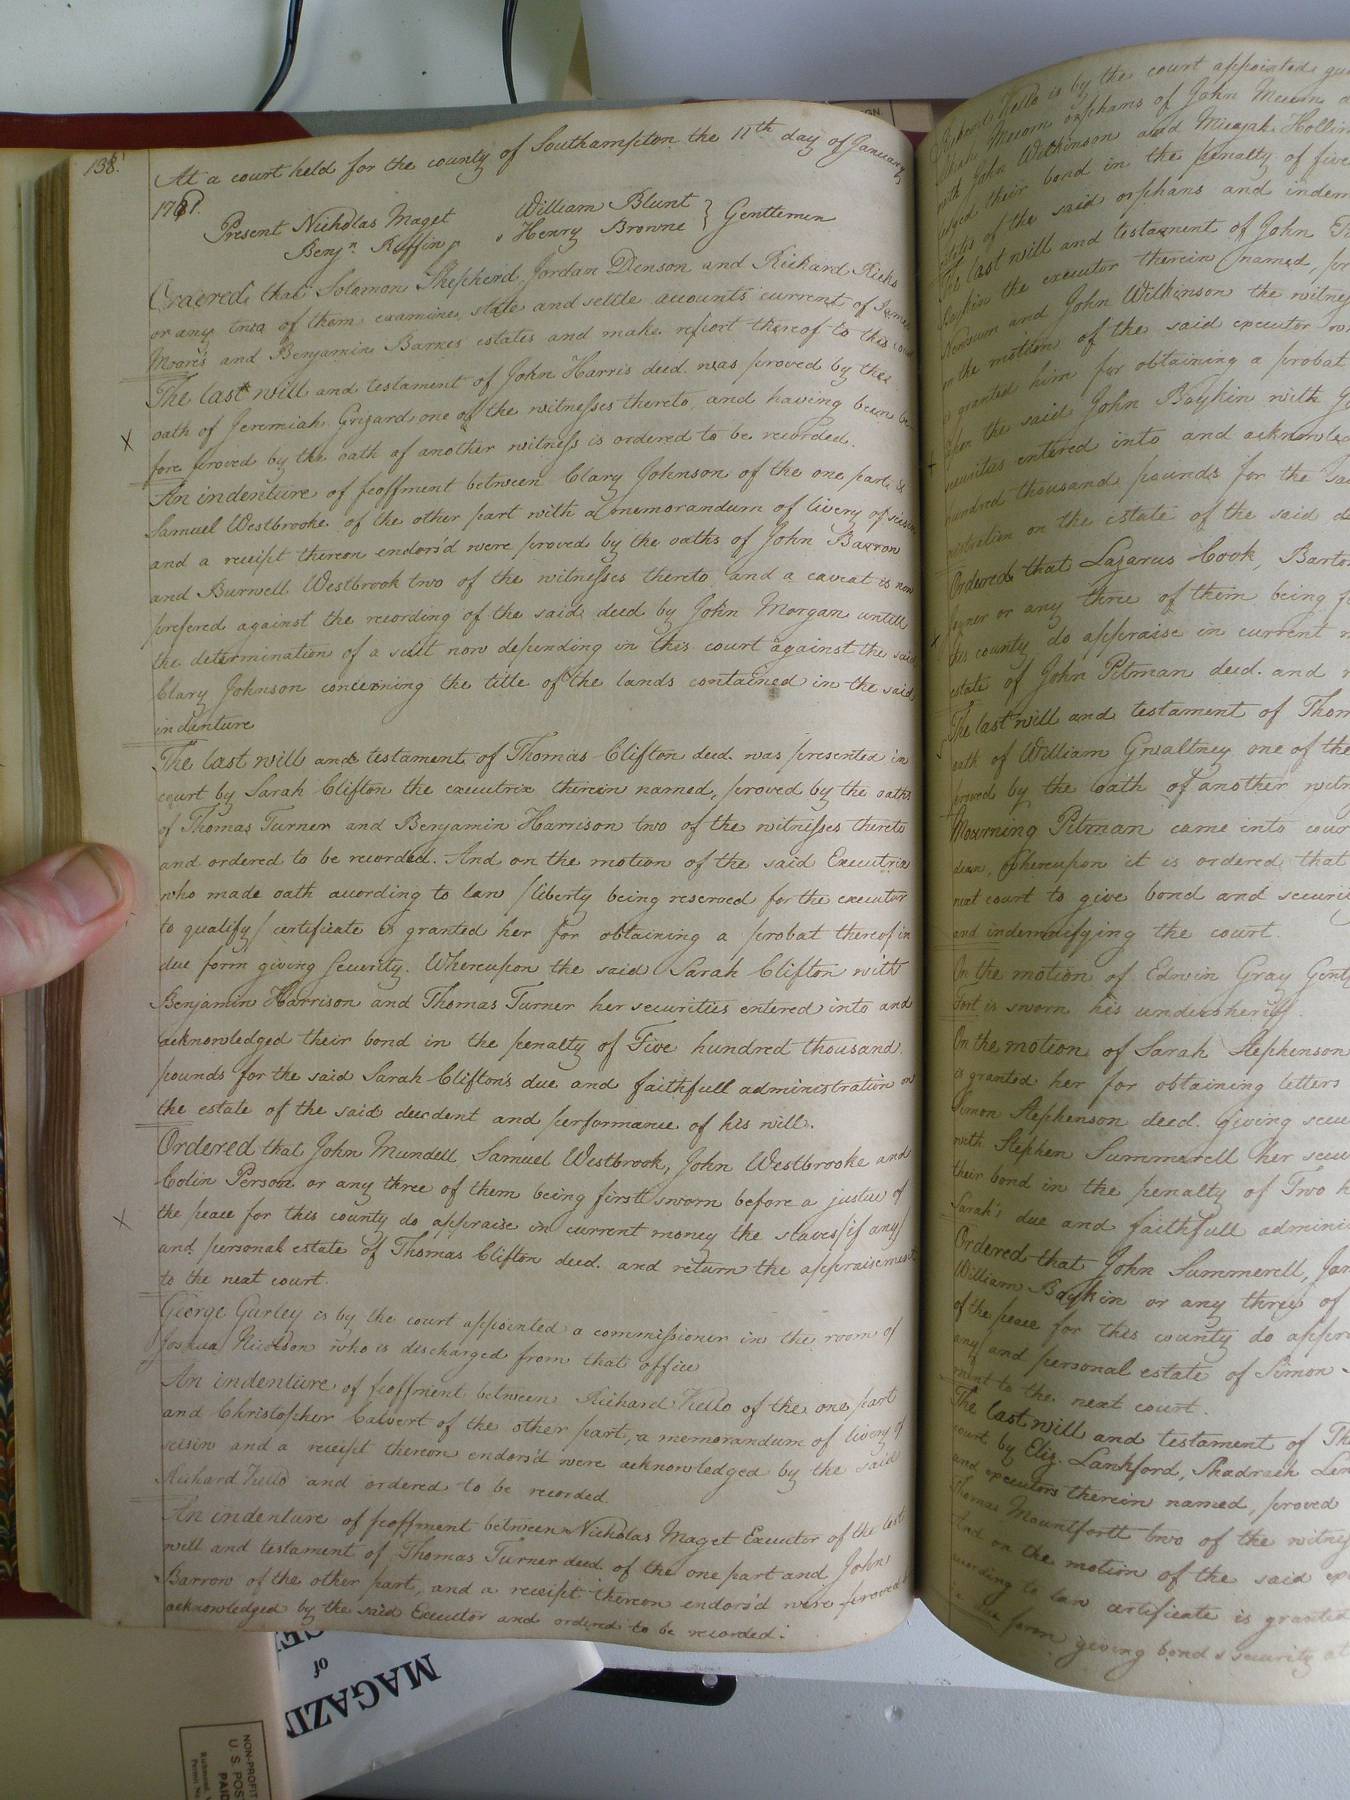 138.
At a court held for the county of Southampton the 11th day of January
1781.
Present Nicholas Maget William Blunt } Gentlemen
Benjn. Ruffin, Henry Browne
Ordered that Solomon Shepherd, Jordan Denson and Richard Ricks
or any two of them examine, state and settle accounts current of James
Moore's and Benjamin Barnes estates and make report thereof to this court
The last will and testament of John Harris decd. was proved by the
oath of Jeremiah Grizard one of the witnesses thereto, and having been be-
fore proved by the oath of another witness is ordered to be recorded.
An indenture of feoffment between Clary Johnson of the one part &
Samuel Westbrooke of the other part with a memorandum of livery of seisin
and a receipt thereon endors'd were proved by the oaths of John Barrow
and Burwell Westbrook two of the witnesses thereto, and a caveat is now
prefered against the recording of the said deed by John Morgan untill
the determination of a suit now depending in this court against the said
Clary Johnson concerning the title of the lands contained in the said
indenture
The last will and testament of Thomas Clifton decd. was presented in
court by Sarah Clifton the executrix therein named, proved by the oaths
of Thomas Turner and Benjamin Harrison two of the witnesses thereto
and ordered to be recorded. And on the motion of the said Executrix
who made oath according to law /liberty being reserved for the executor
to qualify/ certificate is granted her for obtaining a probat thereof in
due form giving security. Whereupon the said Sarah Clifton with
Benjamin Harrison and Thomas Turner her securities entered into and
acknowledged their bond in the penalty of Five hundred thousand
pounds for the said Sarah Clifton's due and faithfull administration on
the estate of the said decedent and performance of his will.
Ordered that John Mundell, Samuel Westbrook, John Westbrooke and
Colin Person or any three of them being first sworn before a justice of
the peace for this county do appraise in current money the slaves/if any/
and personal estate of Thomas Clifton decd. and return the appraisement
to the next court.
George Gurley is by the court appointed a commissioner in the room of
Joshua Nicolson who is discharged from that office
An indenture of feoffment between Richard Kello of the one part
and Christopher Calvert of the other part, a memorandum of livery of
seisin and a receipt thereon endors'd were acknowledged by the said
Richard Kello and ordered to be recorded.
An indenture of feoffment between Nicholas Maget Executor of the last
will and testament of Thomas Turner decd of the one part and John
Barrow of the other part, and a receipt thereon endors'd were proved
acknowledged by the said Executor and ordered to be recorded.
Richard Kello is by the court appointed
orphans of John
with John Wilkinson and Micajah
their bond in the penalty of five
of the said orphans and
The last will and testament of John
Boykin the executor therein named,
and John Wilkinson the
on the motion of the said executor
is granted him for obtaining a probat
the said John Boykin with
securities entered into and
hundred thousand pounds for the
on the estate of the said
Ordered that Lazarus Cook, Barto
or any three of them being
this county do appraise in current
estate of John Pitman decd. and
The last will and testament of Thom
oath of William Gwaltney one of the
proved by the oath of another
Mourning Pitman came into cour
Whereupon it is ordered that
next court to give bond and
and indemnifying the court.
On the motion of Edwin Gray
Fort is sworn his undersheriff.
On the motion of Sarah Stephenson
is granted her for obtaining letters
Simon Stephenson decd. giving
with Stephen Summerell her
their bond in the penalty of Two
Sarah's due and faithfull
Ordered that John Summerell,
William Boykin or any three of
of the peace for this county do
any and personal estate of Simon
to the next court.
The last will and testament of
court by Eliz. Lankford, Shadrach
and executors therein named, proved
Thomas Mountfortt two of the
And on the motion of the said
according to law certificate is granted
form giving bond & security
MAGAZIN
of
NON-PROFIT
U. S. POST
PAID
Richmond,
Permit No.